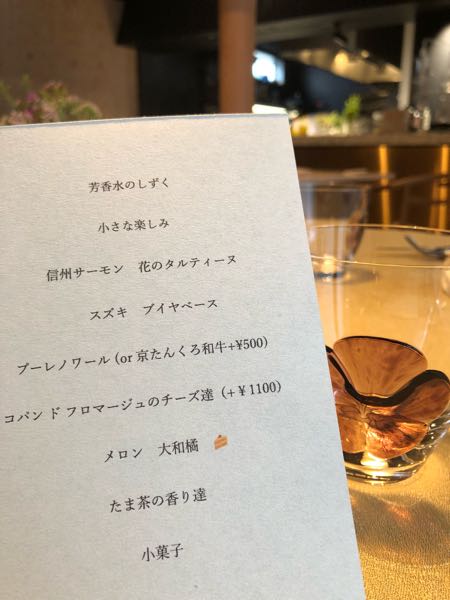 芳香水のしずく
小さな楽しみ
信州サーモン　花のタルティーヌ
スズキ　ブイヤベース
プーレノワール (or 京たんくろ和牛+¥500)
コパンド フロマージュのチーズ達 (+¥1100)
メロン　大和橘
たま茶の香り達
小菓子